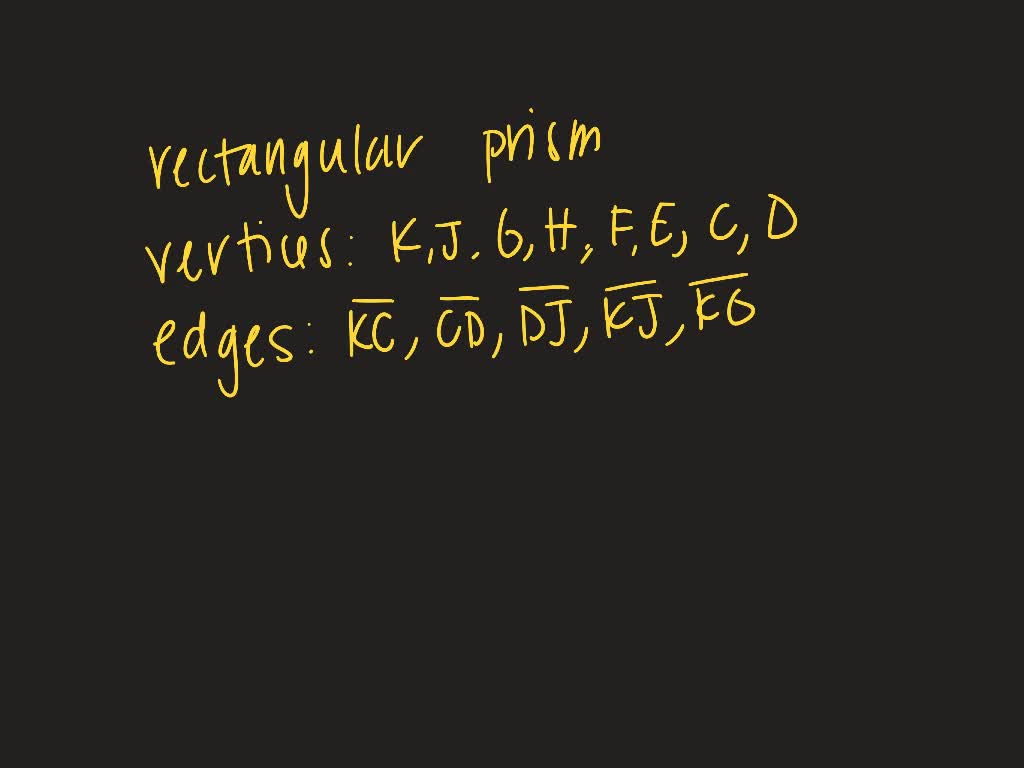 rectangular prism
vertices: K, J. G, H, F, E, C, D
edges: K̅C̅, C̅D̅, D̅J̅, K̅J̅, K̅G̅